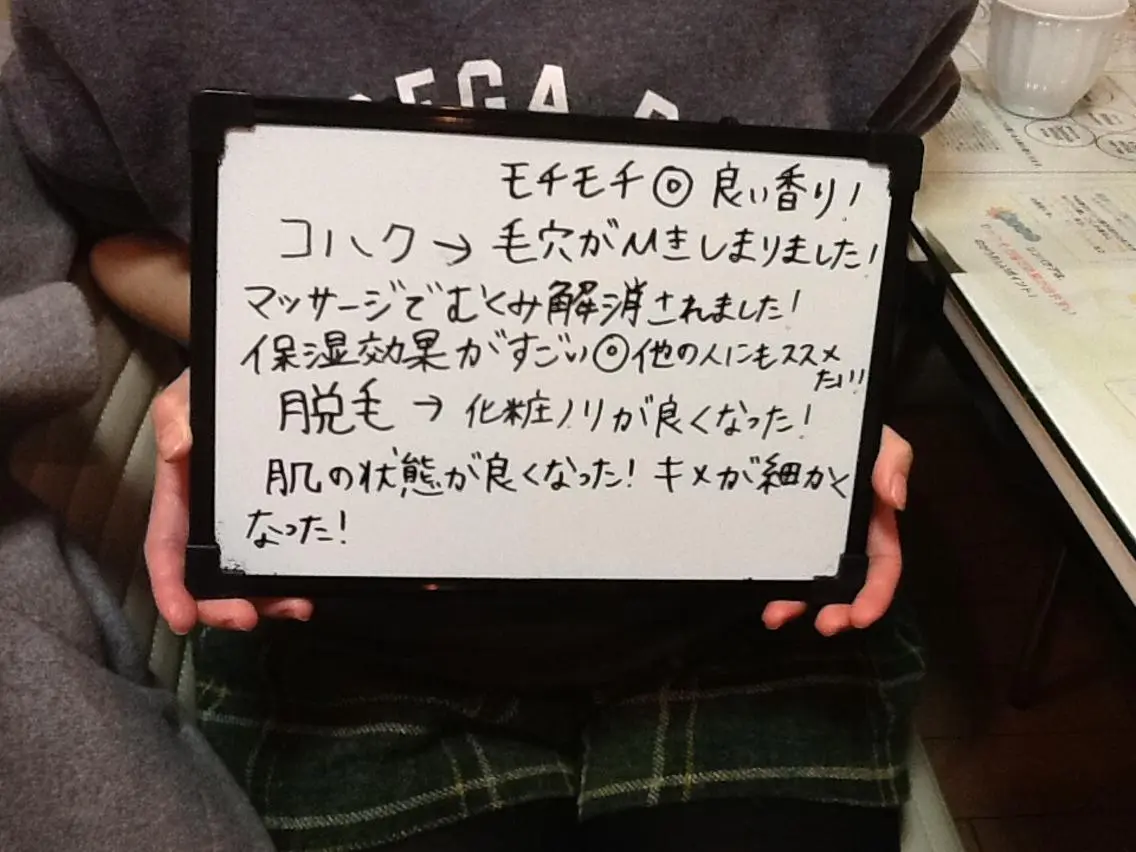 EGA
モチモチ◎良い香り!
コハク→毛穴が引きしまりました!
マッサージでむくみ解消されました!
保湿効果がすごい◎他の人にもススメ
たい!!
脱毛→化粧ノリが良くなった!
肌の状態が良くなった!キメが細かく
なった!